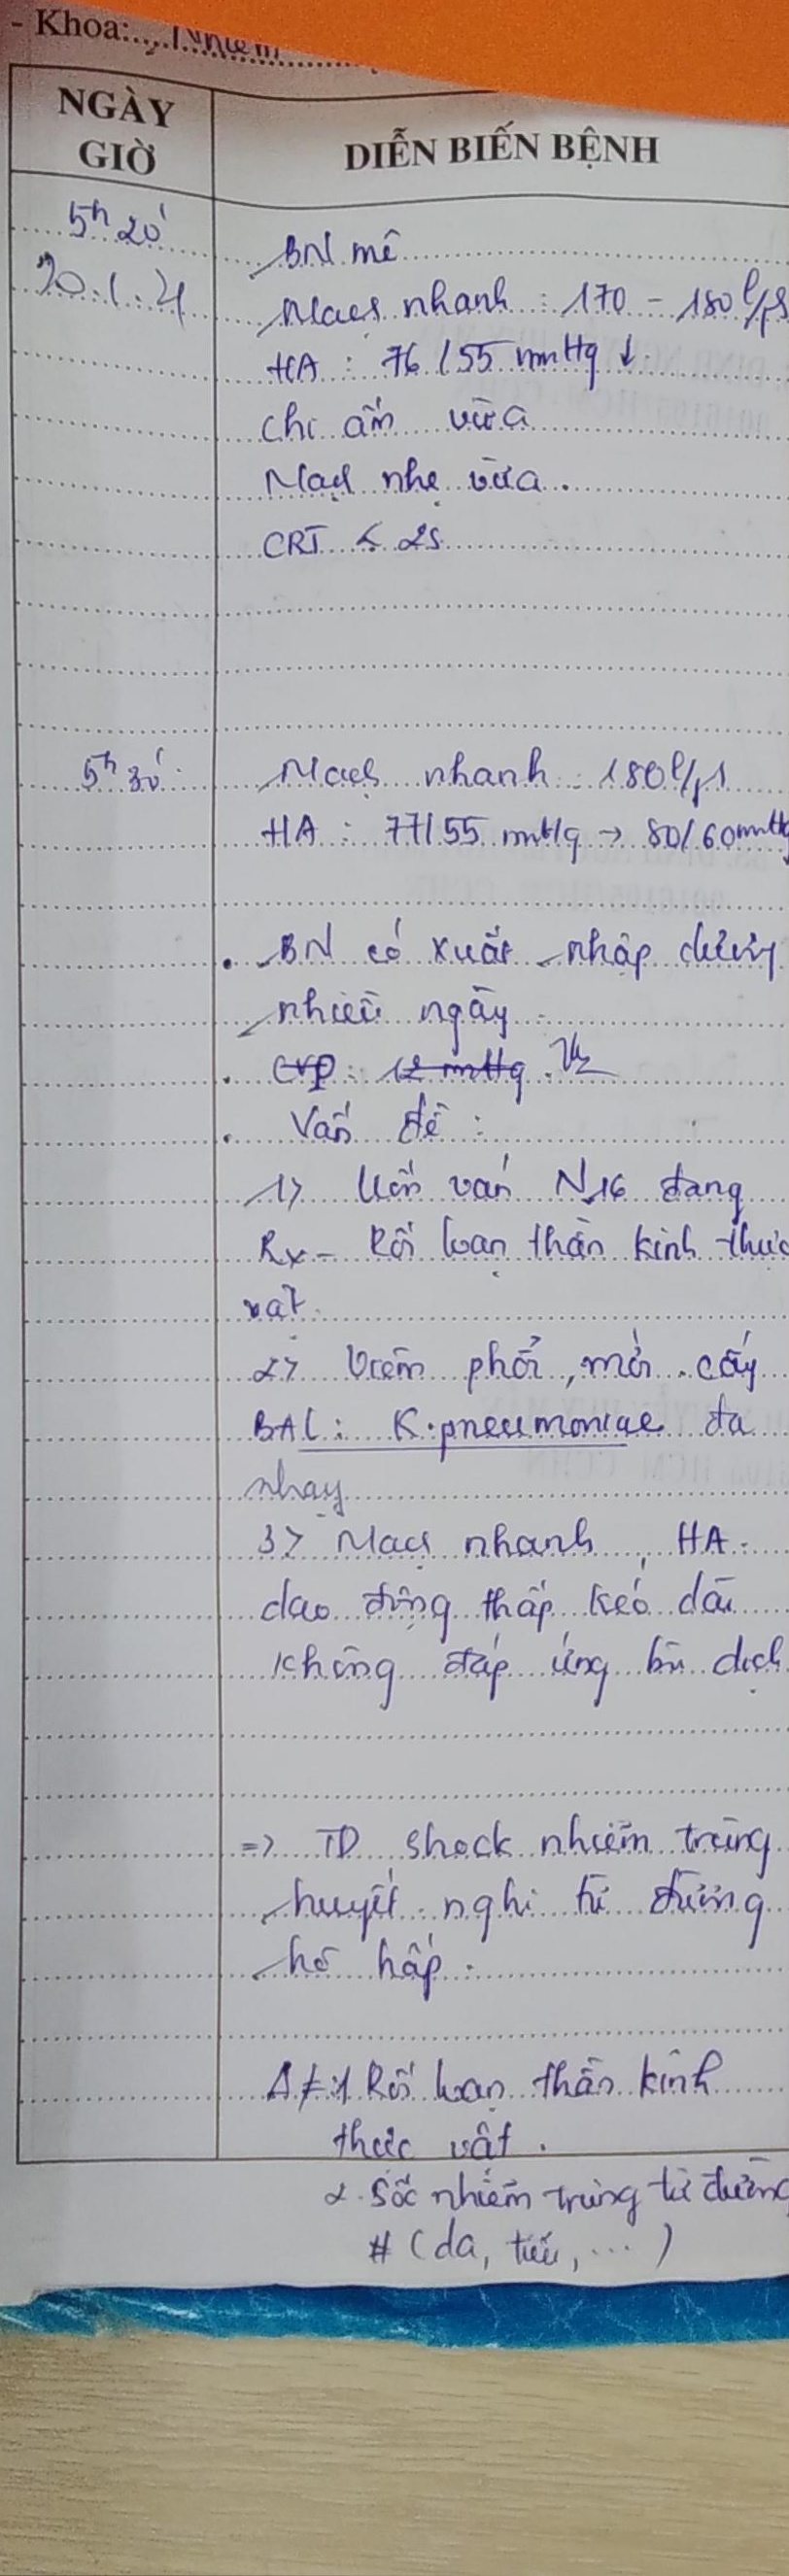 - Khoa: Nhiễm
NGÀY GIỜ
DIỄN BIẾN BỆNH
5h20'
BN mê
20.1.21
Mạch nhanh : 170 - 180 l/ph
HA : 76/55 mmHg ↓
Chi ấm vừa
Mạch nhẹ vừa.
CRT < 2s
5h30'
Mạch nhanh : 180 l/ph
HA : 77/55 mmHg → 80/60mmHg
. BN có xuất nhập dương
nhiều ngày
. CVP : 12 mmHg.
. Vấn đề :
1> Uốn ván N16 đang
Rx - Rối loạn thần kinh thực
vật.
2> Viêm phổi, mủ. cấy
BAL : K.pneumoniae đa
nhạy
3> Mạch nhanh, HA
dao động thấp kéo dài
không đáp ứng bù dịch
=> TD shock nhiễm trùng
huyết nghi từ đường
hô hấp.
Δ≠: 1. Rối loạn thần kinh
thực vật.
2. Sốc nhiễm trùng từ đường
# (da, tiểu, ...)